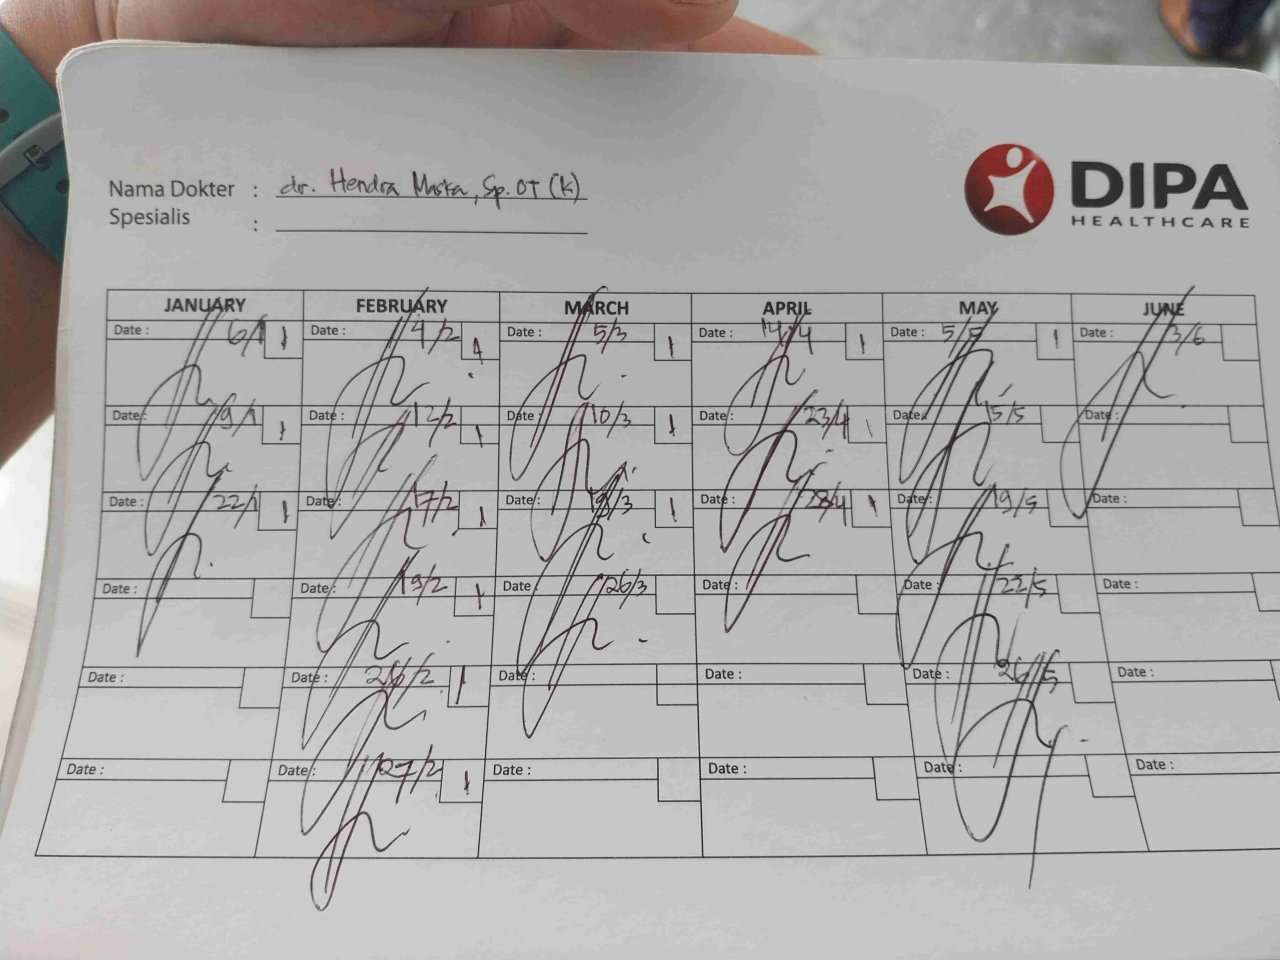 DIPA
HEALTHCARE
Nama Dokter : dr. Hendra Maska, Sp.OT (K)
Spesialis :
JANUARY FEBRUARY MARCH APRIL MAY JUNE
Date : 6/1 1 Date : 4/2 1 Date : 5/3 1 Date : 14/4 1 Date : 5/5 1 Date : 3/6
Date : 9/1 1 Date : 12/2 1 Date : 10/3 1 Date : 23/4 1 Date : 15/5 Date :
Date : 22/1 1 Date : 17/2 1 Date : 18/3 1 Date : 28/4 1 Date : 19/5 Date :
Date : Date : 19/2 1 Date : 26/3 Date : Date : 22/5 Date :
Date : Date : 26/2 1 Date : Date : Date : 26/5 Date :
Date : Date : 27/2 1 Date : Date : Date : Date :